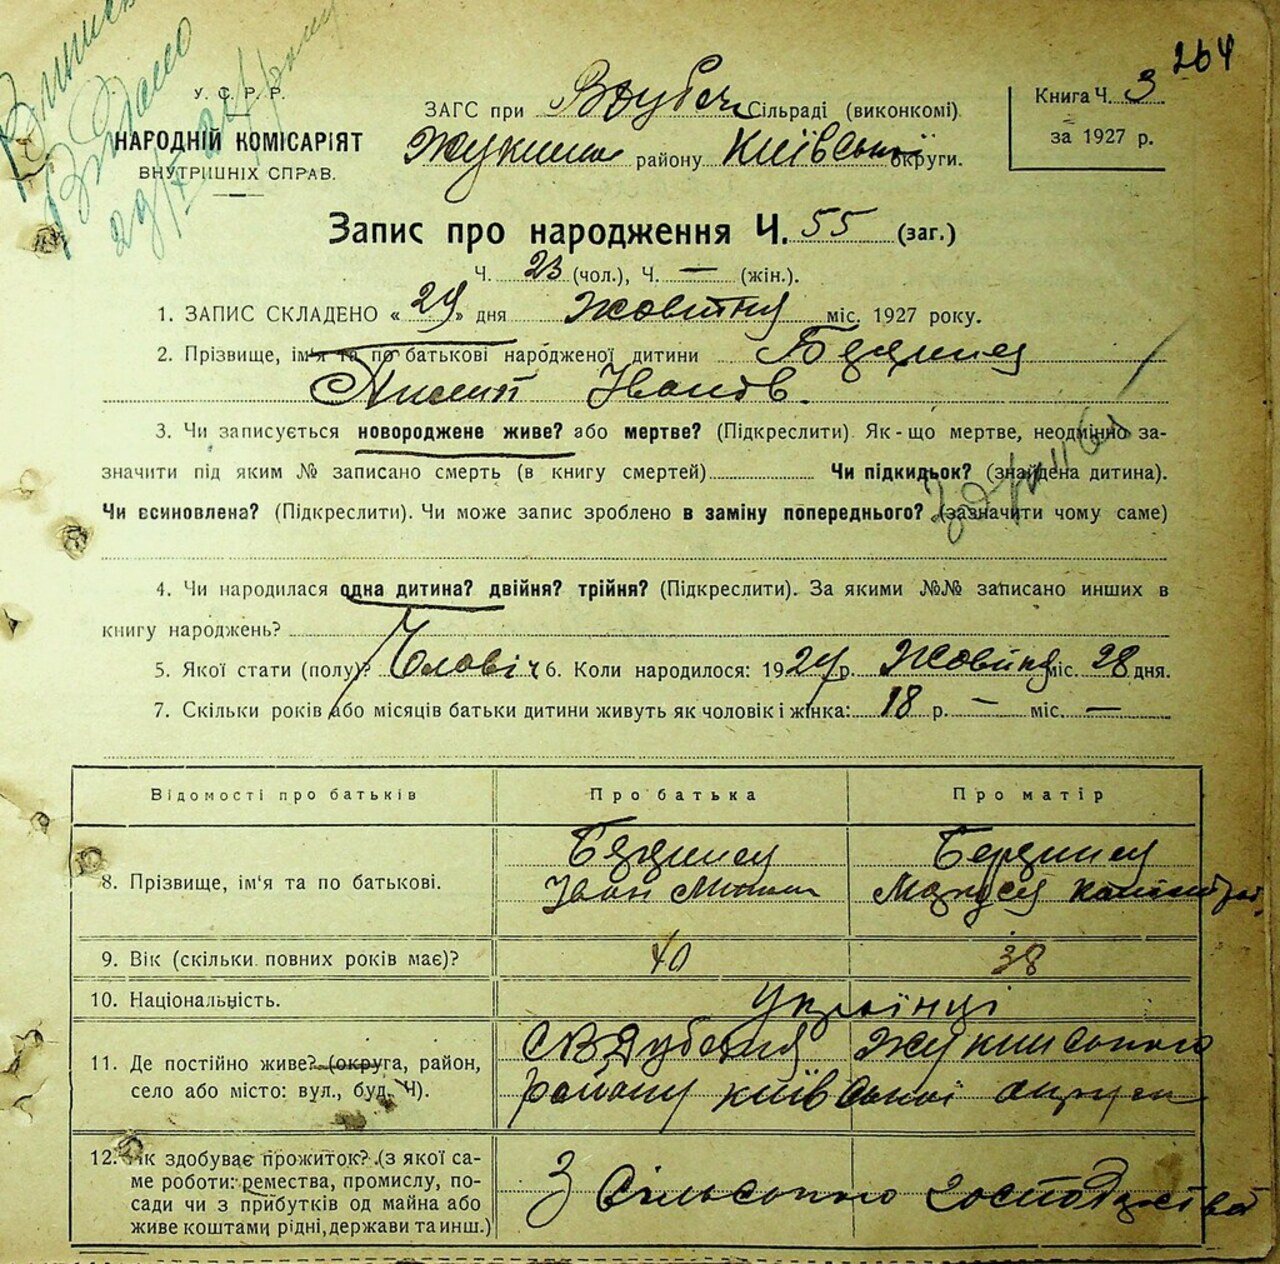 264
У. С. Р. Р.
НАРОДНІЙ КОМІСАРІЯТ
ВНУТРИШНІХ СПРАВ.
ЗАГС при Сільраді (виконкомі)
району Київської округи.
Книга Ч. 3
за 1927 р.
Запис про народження Ч. 55 (заг.)
Ч. 23 (чол.), Ч. — (жін.).
1. ЗАПИС СКЛАДЕНО « 29 » дня Жовтня міс. 1927 року.
2. Прізвище, ім'я та по батькові народженої дитини
Іванов.
3. Чи записується новороджене живе? або мертве? (Підкреслити). Як-що мертве, неодмінно за-
значити під яким № записано смерть (в книгу смертей) Чи підкидьок? (знайдена дитина).
Чи всиновлена? (Підкреслити). Чи може запис зроблено в заміну попереднього? (зазначити чому саме)
4. Чи народилася одна дитина? двійня? трійня? (Підкреслити). За якими №№ записано инших в
книгу народжень?
5. Якої стати (полу)? Чоловіч 6. Коли народилося: 1927 р. Жовтня міс. 28 дня.
7. Скільки років або місяців батьки дитини живуть як чоловік і жінка: 18 р. — міс. —
Відомості про батьків
Про батька
Про матір
8. Прізвище, ім'я та по батькові.
Іван
9. Вік (скільки повних років має)?
40
38
10. Національність.
Українці
11. Де постійно живе? (округа, район,
село або місто: вул., буд. Ч).
району Київської округи
12. Як здобуває прожиток? (з якої са-
ме роботи: ремества, промислу, по-
сади чи з прибутків од майна або
живе коштами рідні, держави та инш.)
З сільського господарства